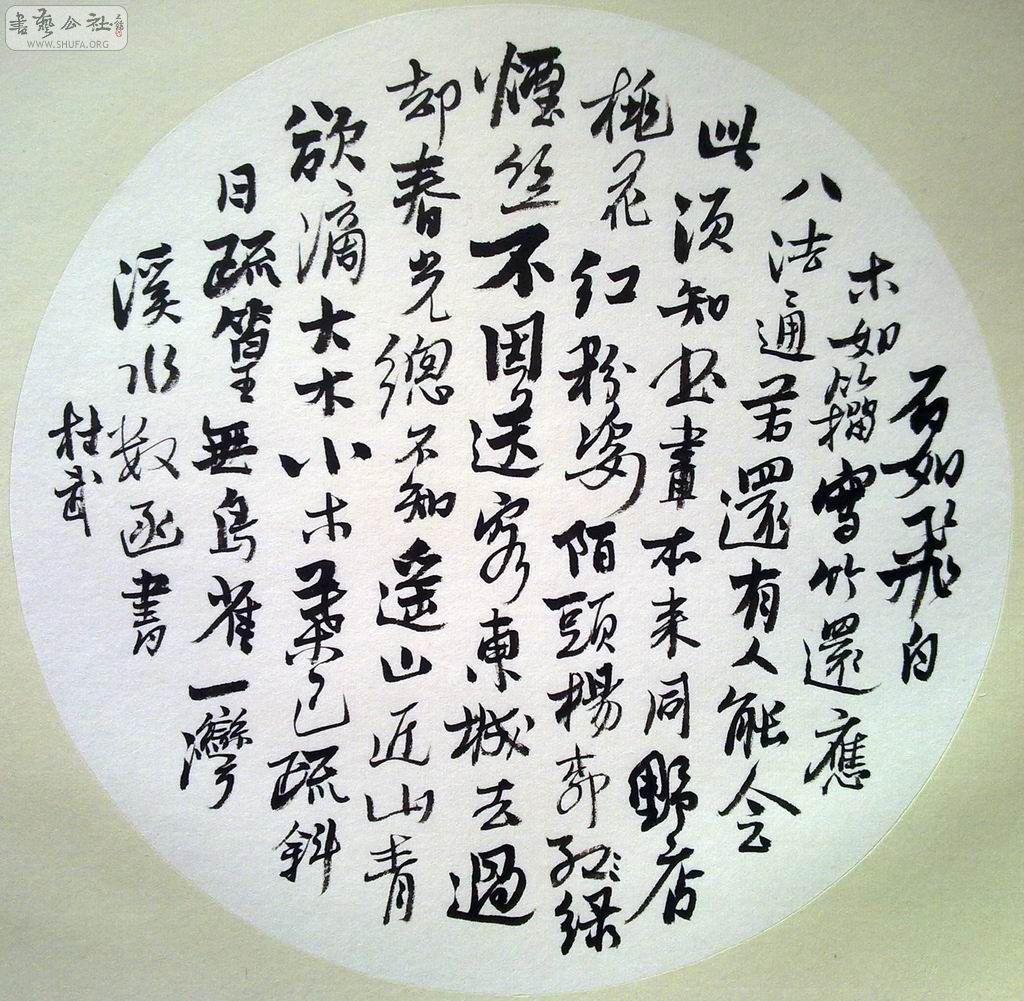 書藝公社
WWW.SHUFA.ORG
石如飛白
木如籀寫竹還應
八法通若還有人能会
此須知书畫本来同野店
桃花红粉姿陌頭楊柳红綠
煙丝不因送客東城去過
却春光總不知遥山近山青
欲滴大木小木葉已疏斜
日疏篁無鳥雀一灣
溪水数函書
杜武